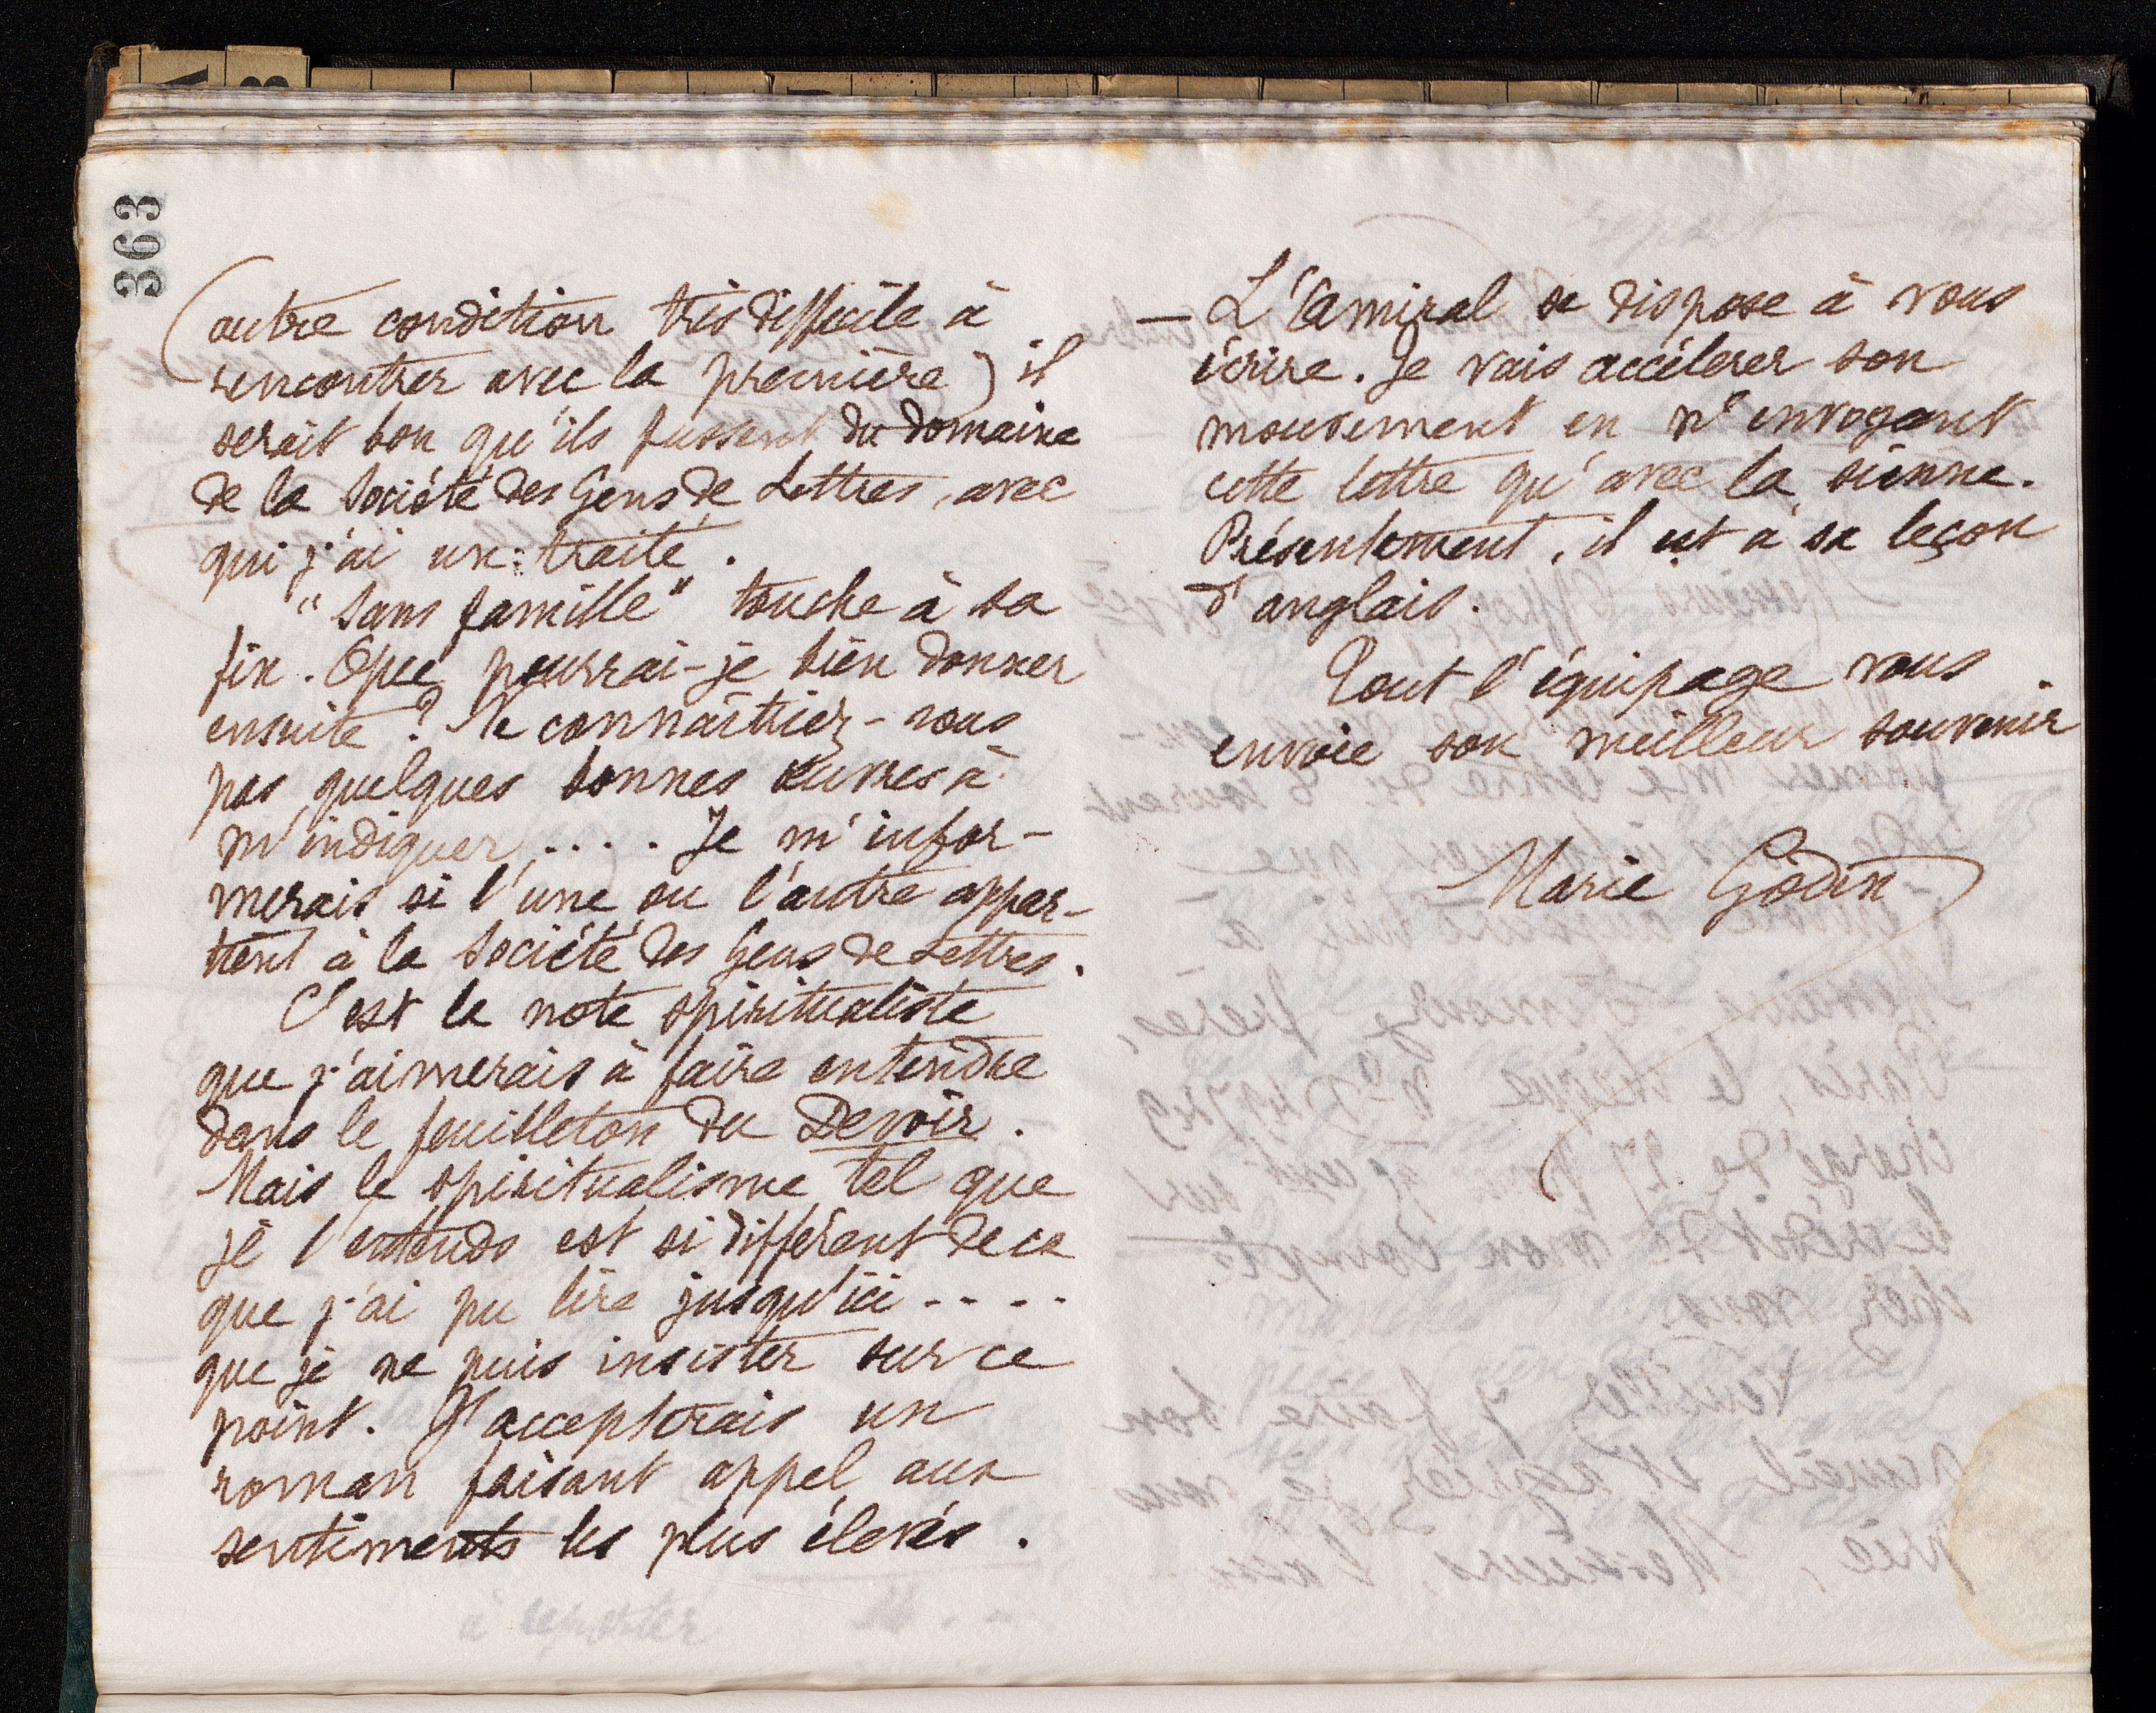 363
(autre condition très difficile à
rencontrer avec la première) il
serait bon qu'ils fussent du domaine
de la Société des Gens de Lettres, avec
qui j'ai un traité.
"Sans famille" touche à sa
fin. Que pourrai-je bien donner
ensuite? Ne connaîtriez-vous
pas quelques bonnes œuvres à
m'indiquer.... Je m'infor-
merais si l'une ou l'autre appar-
tient à la Société des Gens de Lettres.
C'est la note spiritualiste
que j'aimerais à faire entendre
dans le feuilleton du Devoir.
Mais le spiritualisme tel que
je l'entends est si différent de ce
que j'ai pu lire jusqu'ici....
que je ne puis insister sur ce
point. J'accepterais un
roman faisant appel aux
sentiments les plus élevés.
à reporter
— L'Amiral se dispose à vous
écrire. Je vais accélerer son
mouvement en n'envoyant
cette lettre qu'avec la sienne.
Présentement, il est à sa leçon
d'anglais.
Tout l'équipage vous
envoie son meilleur souvenir.
Marie Godin